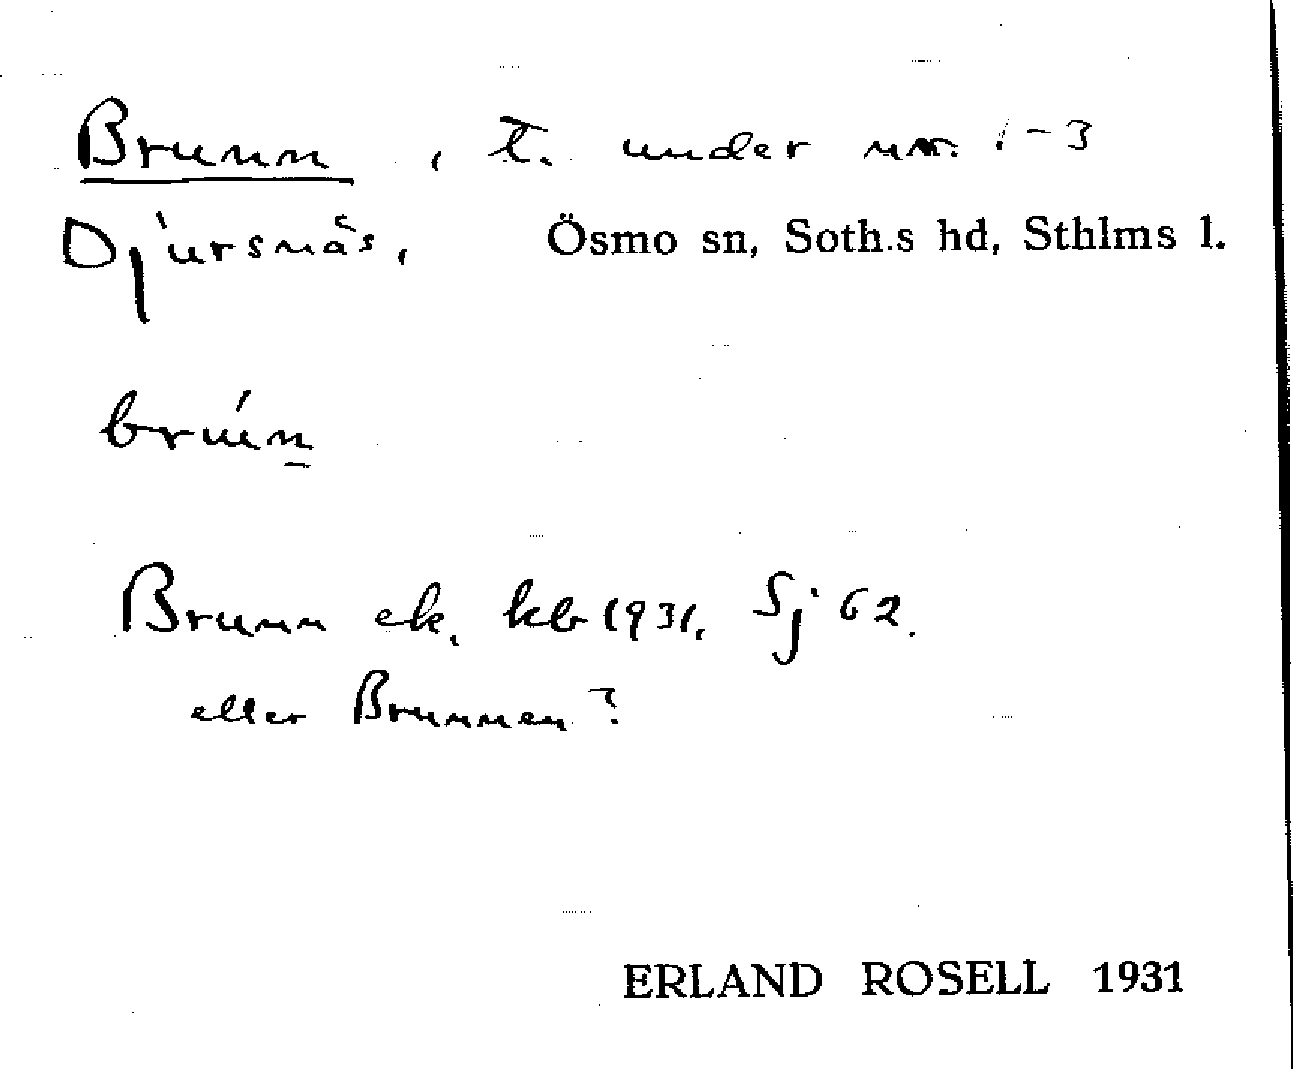 Brunn, t. under nr. 1-3
Djursnäs, Ösmo sn, Soth.s hd, Sthlms l.
brún̠
Brunn ek. kb 1931, Sj 62.
eller Brunnen?
ERLAND ROSELL 1931